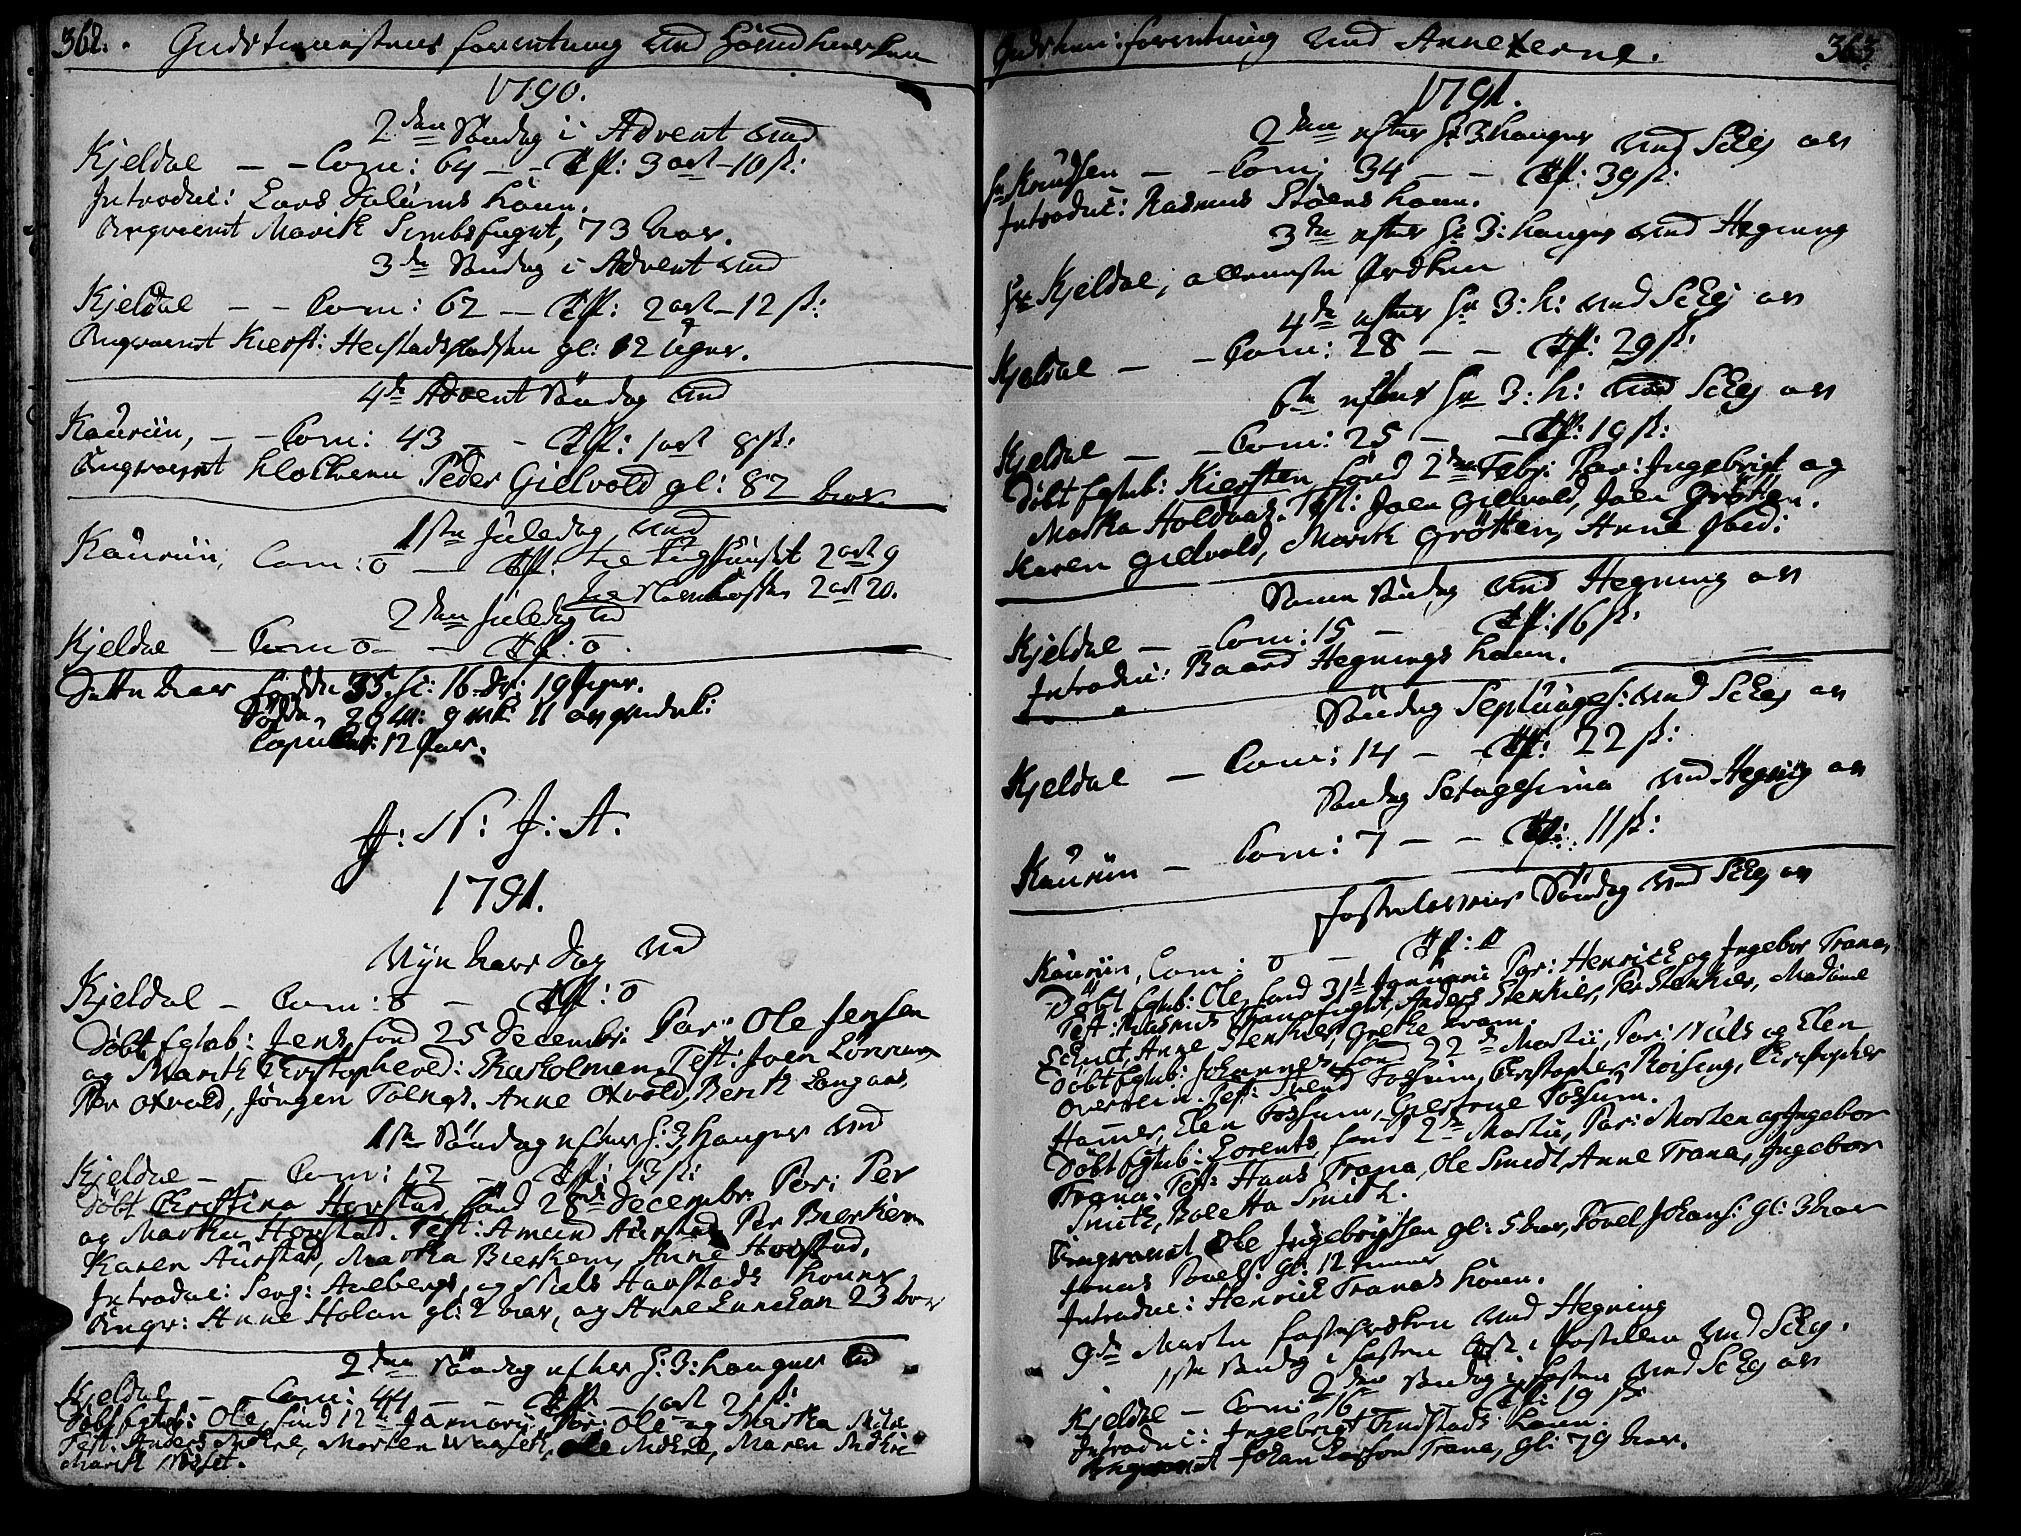 362. Gudstienestens forretning ved Hovedkirken
1790.
2den Söndag i Advent ved
Kjeldal — — Com: 64 — — Off: 3 ort — 10 sk:
Introduc: Lars Dalums kone.
Begravet Marith Sembs, 73 aar.
3de Söndag i Advent ved
Kjeldal — — Com: 62 — Off: 2 ort — 12 sk:
Begravet Kierst: Heistadpladsen gl: 12 uger.
4de Advent Söndag ved
Kaurün, — — Com: 43 — — Off: 1 ort 8 sk:
Begravet klokkeren Peder Gielvold gl: 82 aar.
1ste Juledag, ved
Kaurün, Com: 0 — Off: 2 ort 9
2 ort 20.
2den Juledag ved
Kjeldal — Com 0 — — Off: 0
Dette aar födde 35.
Döde, 20 m: 9 qvk:
Copuleret: 12 Par.
J: N: J: A.
1791.
Nyt Aars Dag ved
Kjeldal — Com: 0 — Off: 0
Döbt Egteb: Jens, föd 25 Decembr: Par: Ole Jensen
og Marith Christophersd: Skarholmen, Test: Joen
Per Oxvold, Jörgen Tolngs, Anne Oxvold, Berith Langaas,
1ste Söndag efter H: 3 konger ved
Kjeldal — — Com: 12 — Off: 13 sk:
Döbt Christina Hovstad, föd 28de Decembr: Par: Per
og Martha Hovstad. Test: Amund Aurstad, Per Bierkem
Karen Aurstad, Martha Bierkem, Anne Hovstad.
Introduc: Serg: Aalbergs, og Niels Havstads koner
Begr: Anne Holan gl: 2 aar, og Anne 23 aar
2den Söndag efter H: 3: konger ved
Kjeldal — — Com: 44 — — Off — 1 ort 21 sk:
Döbt Egteb: Ole, föd 12te Januarii, Par: Ole og Martha
Test. Anders, Morten, Ole, Maren
Marith
Gudstien: forretning ved Annexerne. 363
1791.
2den efter H: 3 konger ved SEej av
Hr Knudsen — — Com: 34 — — Off: 39 sk:
Introduc: Rasmus Stöens kone.
3die efter H: 3: konger ved Hegning
Hr Kjeldal, alleneste Prædiken
4de efter H: 3: k: ved SEej av
Kjeldal — — Com: 28 — — Off: 29 sk:
6te efter H: 3: k: ved SEej av
Kjeldal — — Com: 25 — — Off: 19 sk:
Döbt Egteb: Kiersten föd 2den Febr: Par: Ingebrigt og
Martha Holdaas. Test: Joen Gielvold, Joen Grötten.
Karen Gielvold, Marith Grötten, Anne ibid:
Samme söndag ved Hegning av
Kjeldal — — Com: 15 — Off: 16 sk:
Introduc: Baard Hegnings kone.
Söndag Septuages: ved SEej av
Kjeldal — Com: 14 — — Off: 22 sk:
Söndag Sexagesima ved Hegning av
Kaurün — Com: 7 — — Off: 11 sk:
Fastelavns Söndag ved SEej av
Kaurün, Com: 0 — Off: 0
Döbt Egteb: Ole, föd 31te Januarii Par: Henrich og Ingebor Trana,
Test: Rasmus, Anders Stenkier, Per Stenkier, Madame
Schult, Anne Stenkier, Grethe Kram.
Döbt Egteb: Johannes föd 22de Martii, Par: Niels og Elen
Overrein. Test: Svend Fossum, Christopher Roising, Christopher
Hammer, Elen Fossum, Gjertrue Fossum.
Döbt Egteb: Lorents föd 2de Martii, Par: Morten og Ingebor
Trana. Test: Hans Trana, Ole Smidt, Anne Trana, Ingebor
Smith, Boletta Smith.
Begravet Ole Ingebrigtsen gl: 5 aar, Povel Johans: gl: 3 aar
Jonas Povels: gl: 12 timer
Introduc: Henrich Tranas kone.
9de Martii fasteprædiken ved Hegning
1ste Söndag i fasten læst i Postillen ved SEej.
2den Söndag i fasten ved SEej av
Kjeldal — Com: 16 — Off: 19 sk:
Introduc: Ingebrigt Tudstads kone.
Begravet Johan Larson Trana, gl: 79 aar.